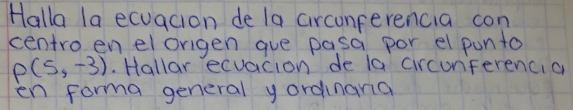 Halla la ecuacion de la circunferencia con
centro en el origen que pasa por el punto
p(5,-3). Hallar ecuacion de la circunferencia
en forma general y ordinaria